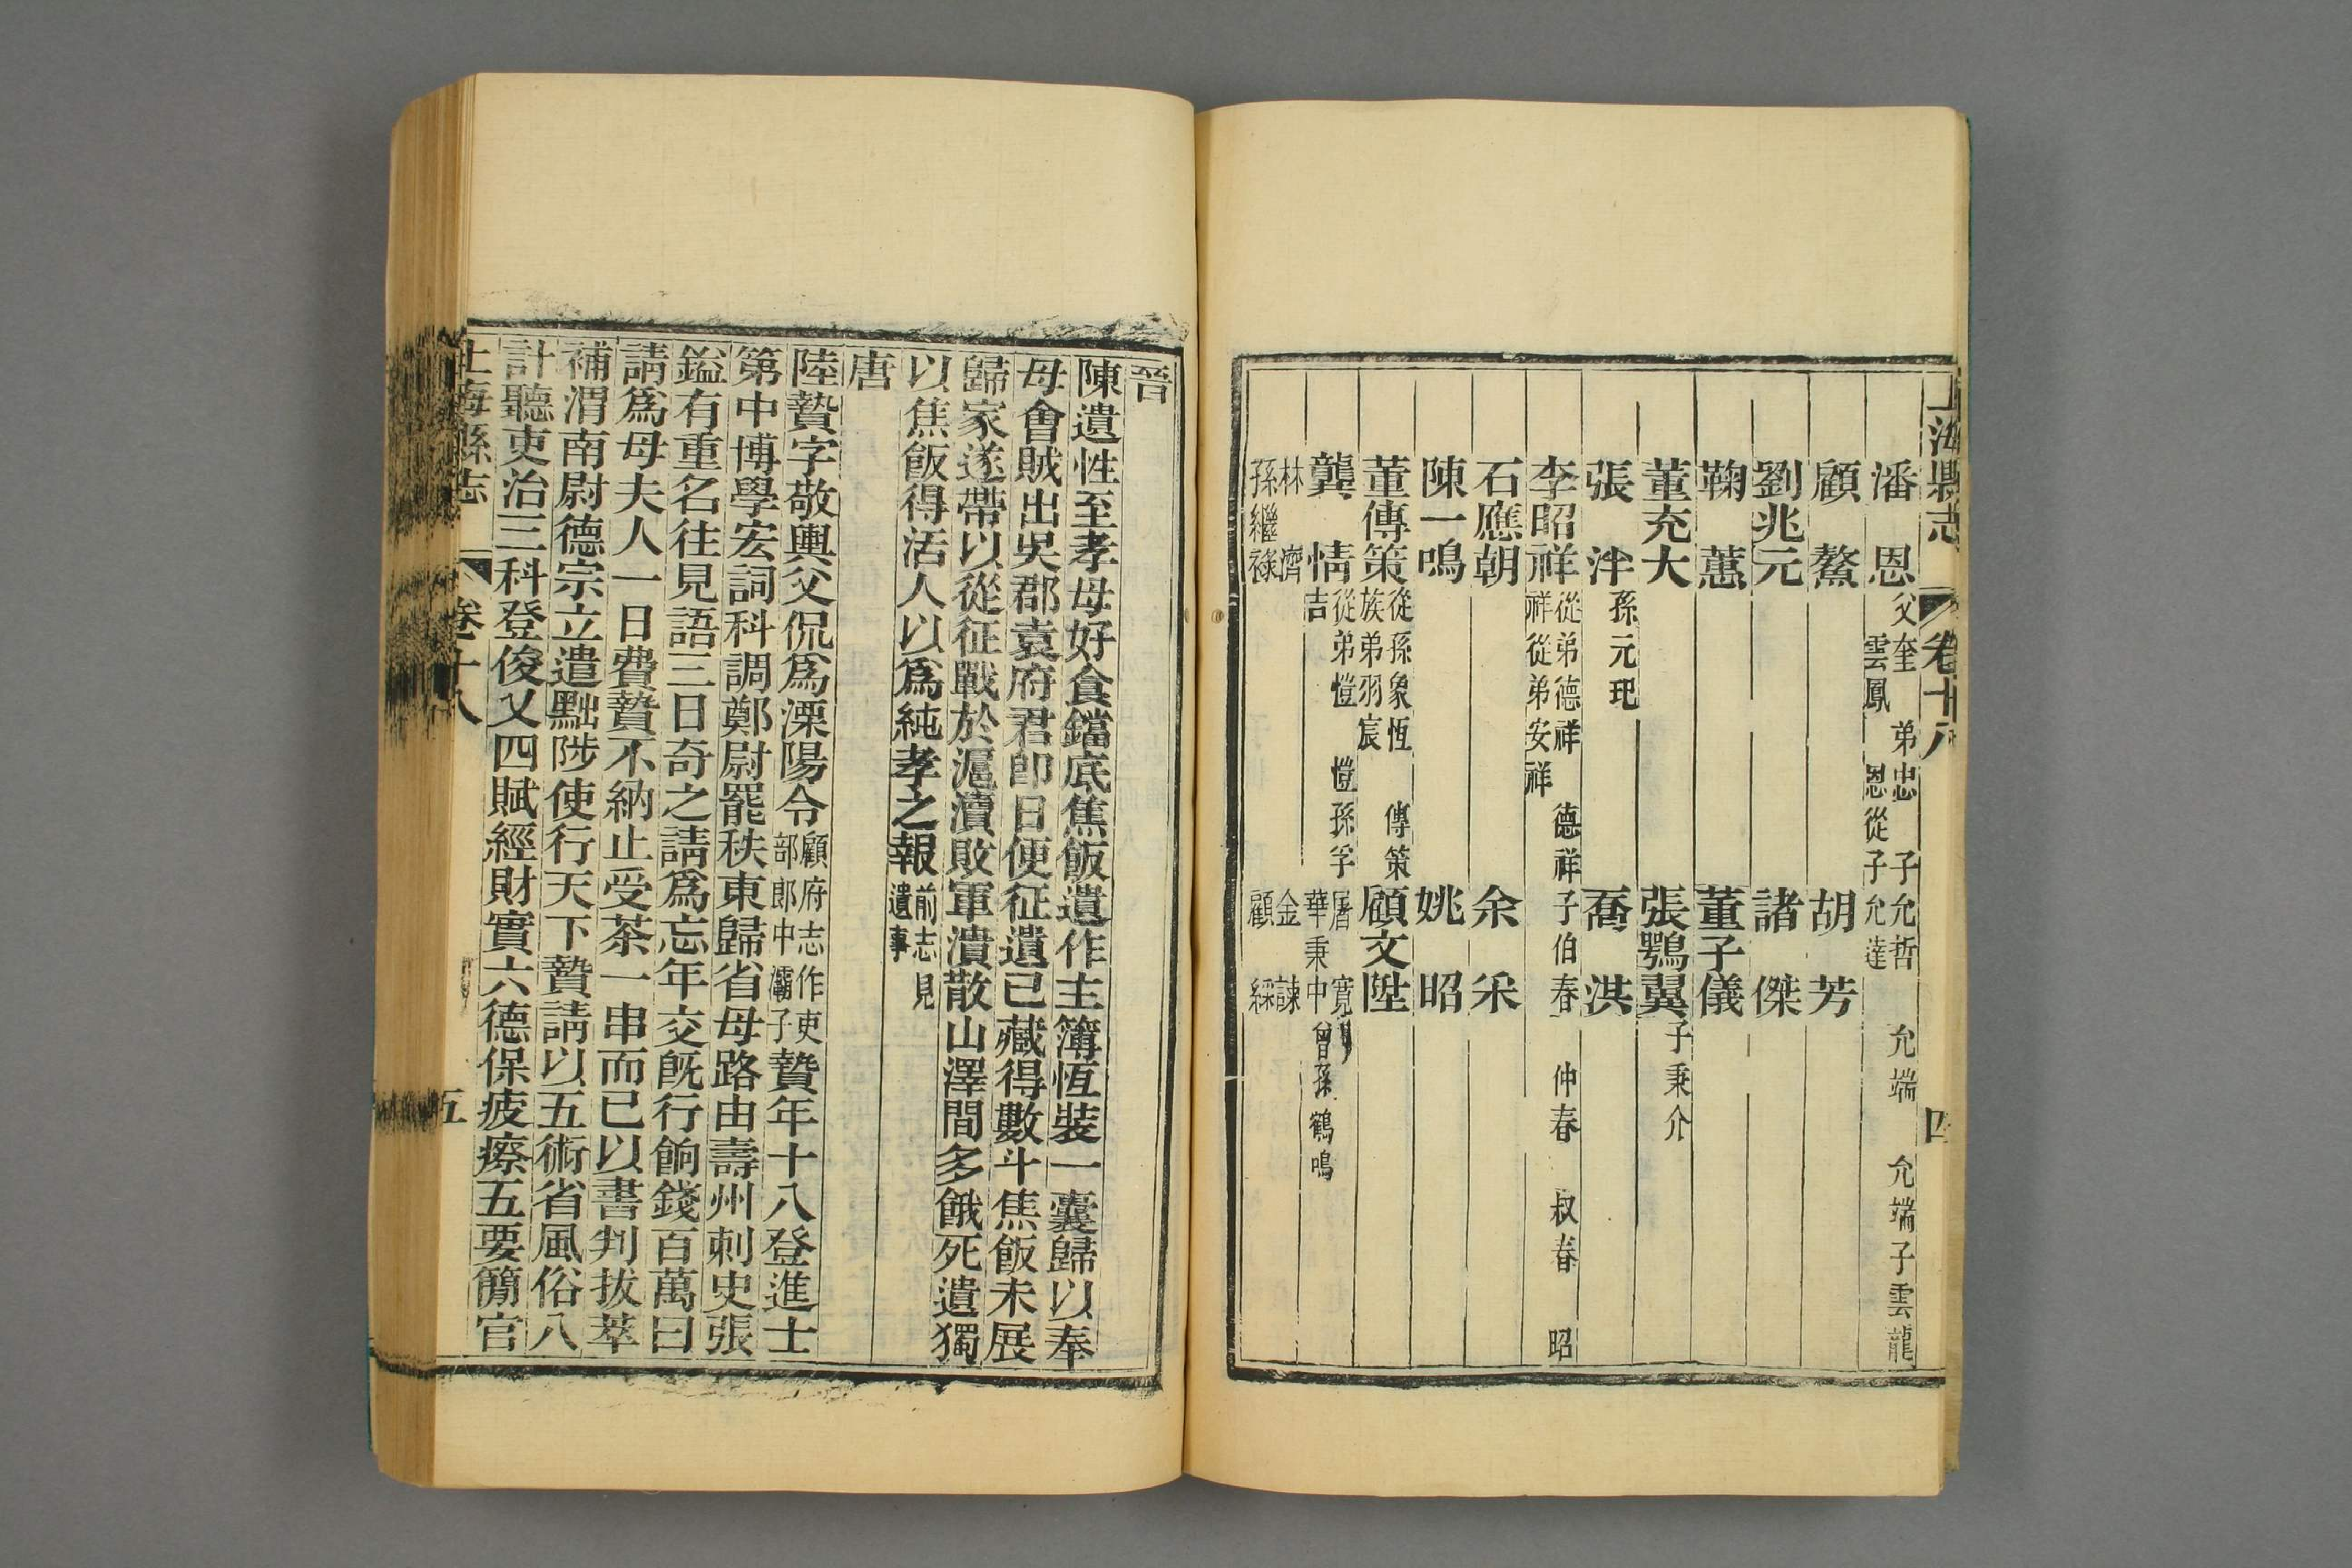 上海縣志 卷十八 四
潘恩 父奎 弟忠 子允哲 允端 允端子雲龍
雲鳳 恩從子允達
顧䥐 胡芳
劉兆元 諸傑
鞠蕙 董子儀
董充大 張鶚翼 子秉介
張泮 孫元玘 喬洪
李昭祥 從弟德祥 德祥子伯春 仲春 叔春 昭
祥從弟安祥
石應朝 余采
陳一鳴 姚昭
董傳策 從孫象恆 傳策 顧文陞
族弟羽宸
龔情 從弟愷 愷孫孚 屠寬
吉 華秉中 曾孫鶴鳴
林濟 金諫
孫繼祿 顧綵
晉
陳遺性至孝母好食鐺底焦飯遺作主簿恆裝一囊歸以奉
母會賊出吳郡袁府君卽日便征遺已藏得數斗焦飯未展
歸家遂帶以從征戰於滬瀆敗軍潰散山澤間多餓死遺獨
以焦飯得活人以爲純孝之報 前志見
遺事
唐
陸贄字敬輿父侃爲溧陽令 顧府志作吏
部郎中灞子 贄年十八登進士
第中博學宏詞科調鄭尉罷秩東歸省母路由壽州刺史張
鎰有重名往見語三日奇之請爲忘年交旣行餉錢百萬曰
請爲母夫人一日費贄不納止受茶一串而已以書判拔萃
補渭南尉德宗立遣黜陟使行天下贄請以五術省風俗八
計聽吏治三科登俊乂四賦經財實六德保疲瘵五要簡官
上海縣志 卷十八 五